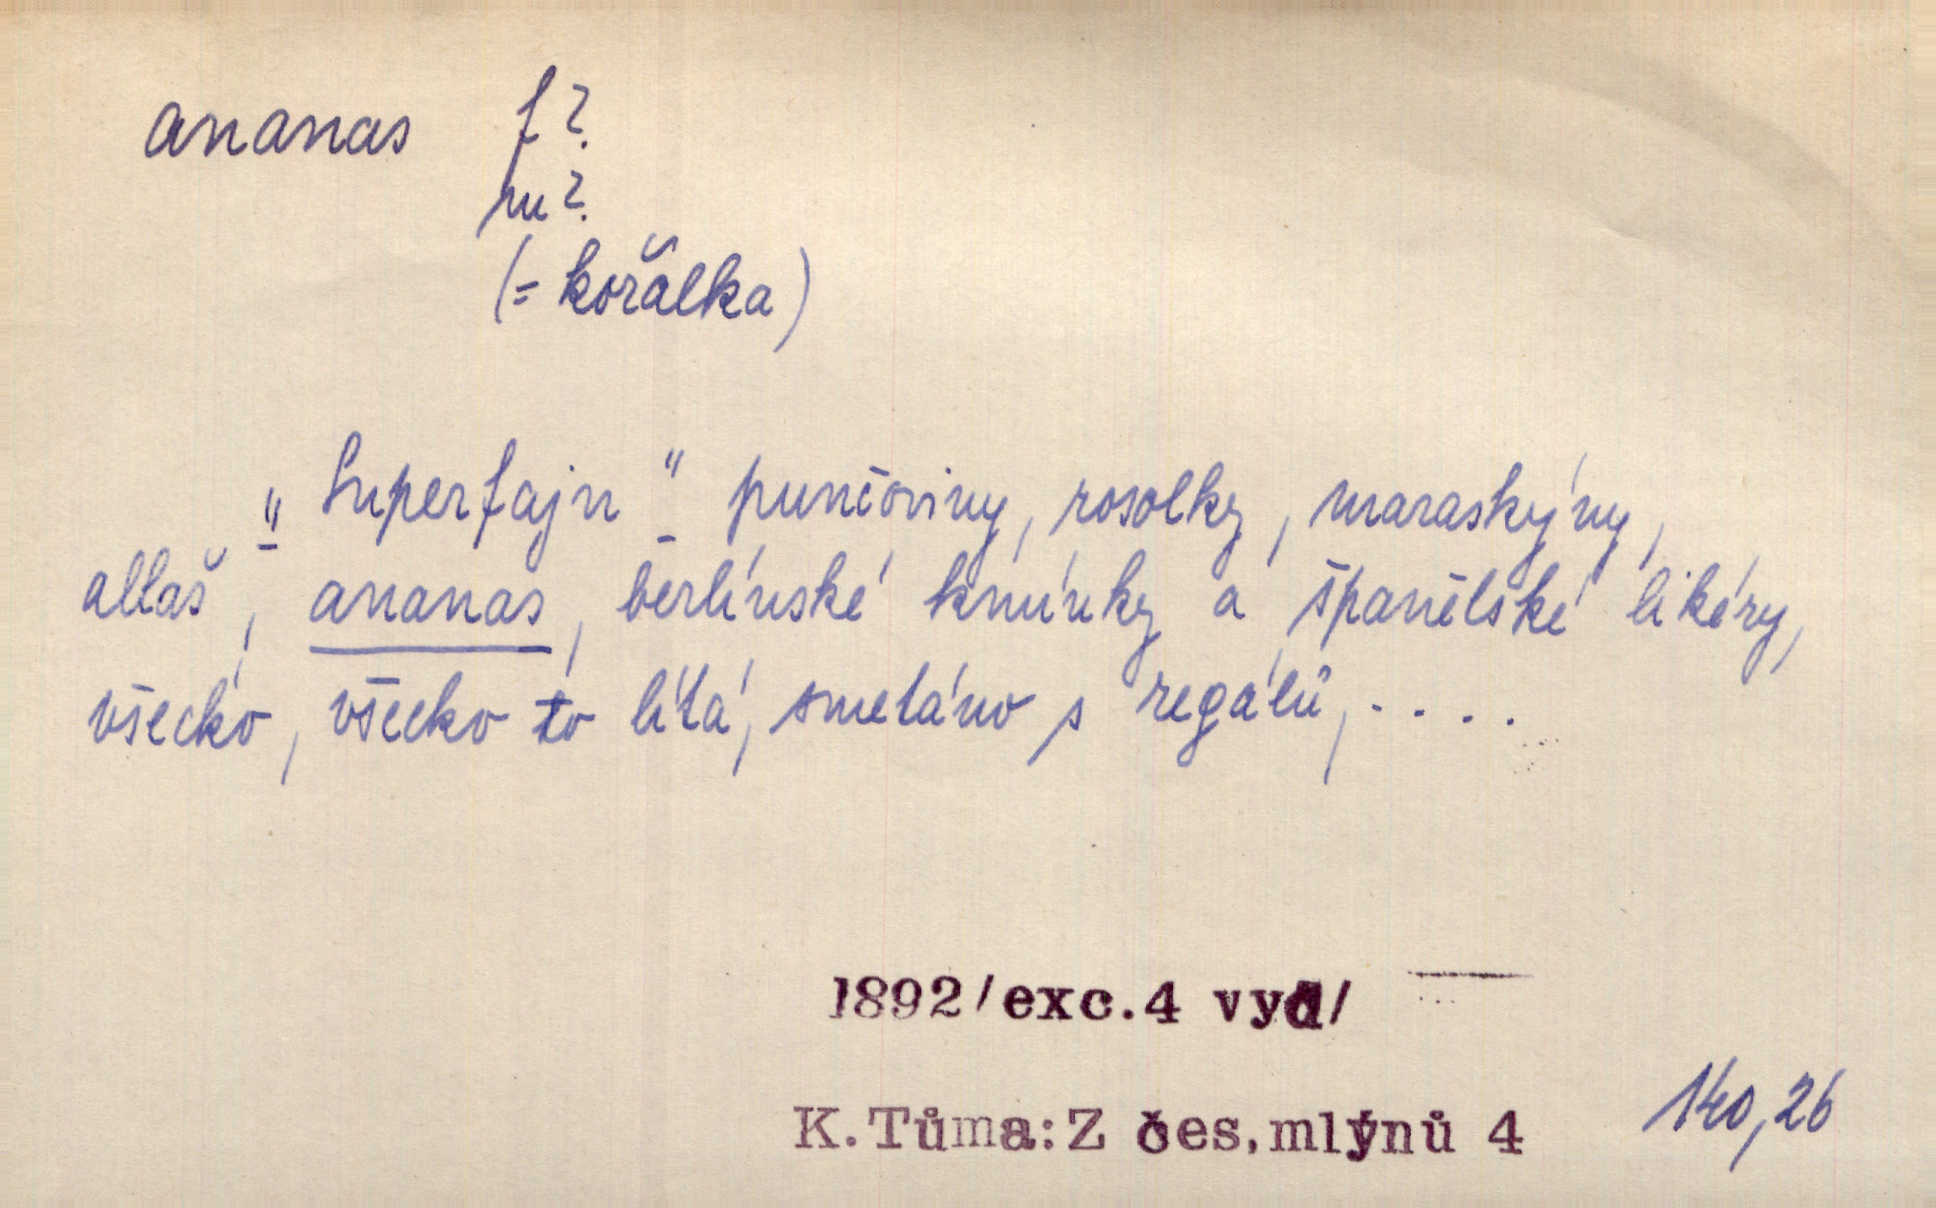 ananas f ?
m ?
(= kořalka)
"Superfajn" punčoviny, rosolky, maraskýny,
allaš, ananas, berlínské kmínky a španělské likéry,
všecko, všecko to lítá, smetáno s regálů, . . . .
1892/exc.4 vyd/
K.Tůma:Z čes.mlýnů 4
140,26